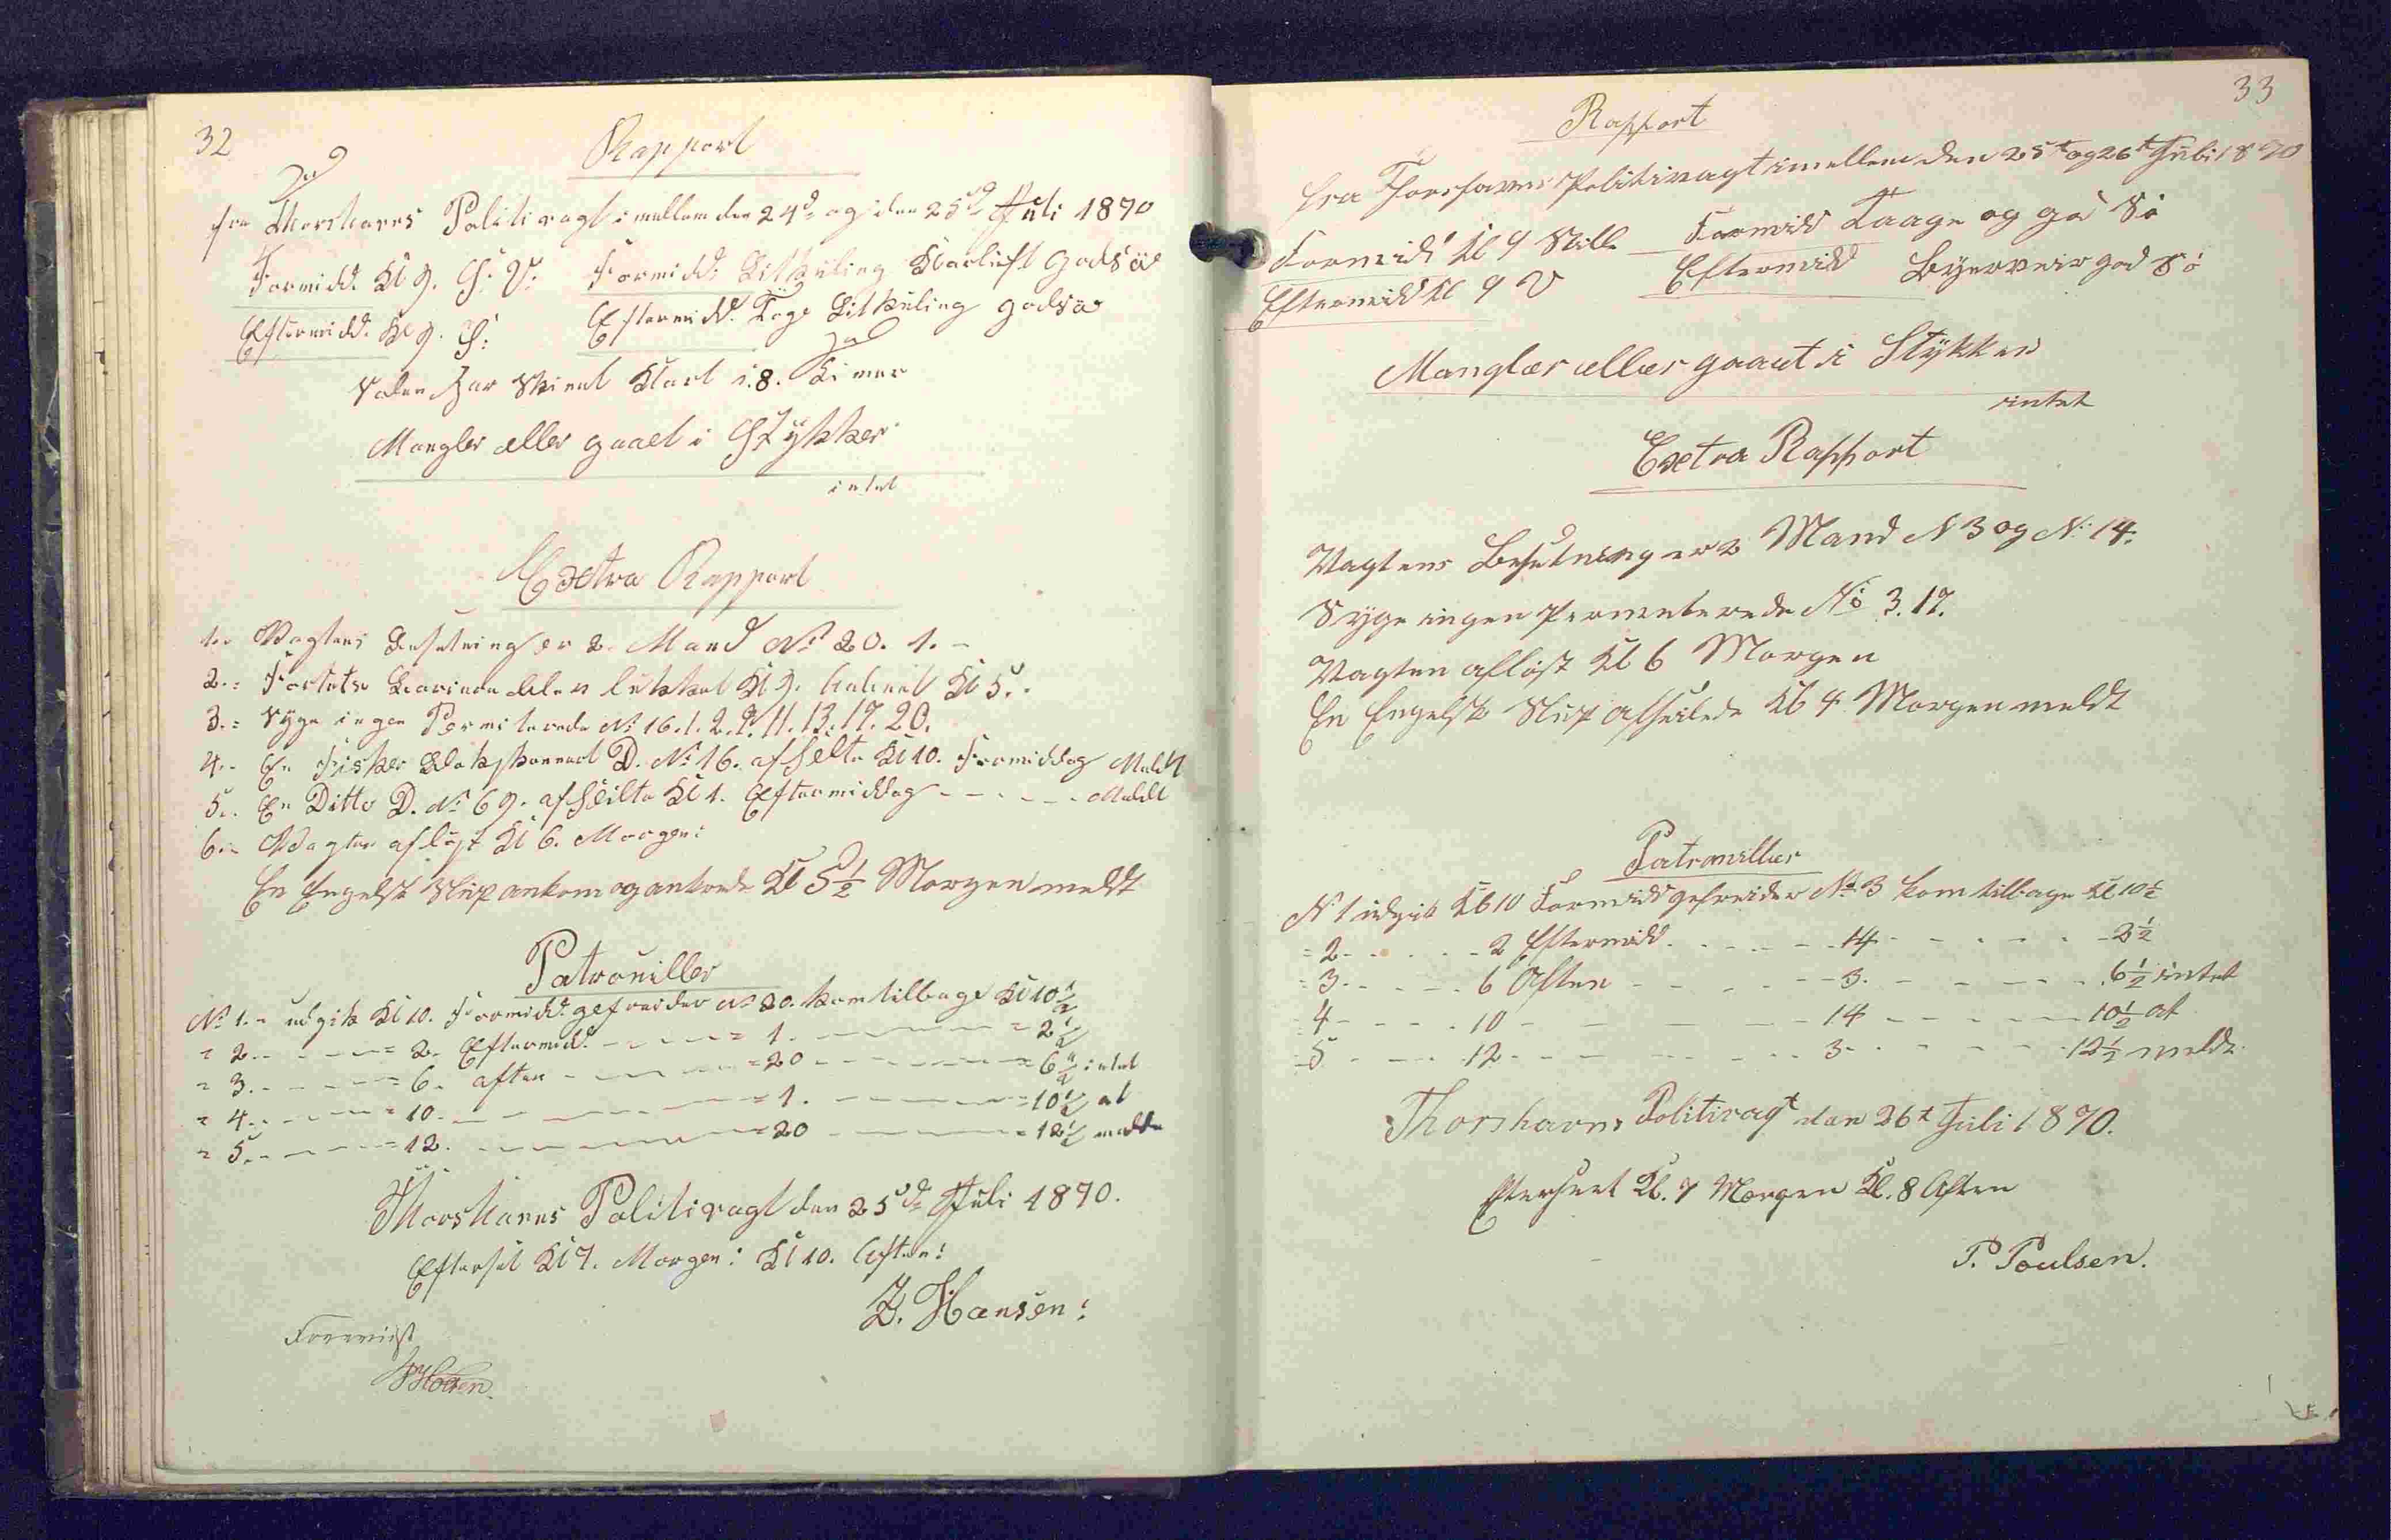 32
Rapport
fra Thorshavns Politivagt imellem den 24d og den 25d Juli 1870
Formidd. Kl 9. S: V: Formidd: Litkuling Klarluft godsö
Eftermidd. Kl 9. S: Eftermidd. Toge Litkuling godsö
Solen har Skient Klart i 8. Timer
Mangler eller gaaet i Stykker
intet
Extra Rapport
1.- Vagtens Besetning er 2. Mand No 20. 1. -
2.= Fortets lukket Kl 9. Aabnet Kl 5.-
3.= Syge ingen Permiterede No 16. 1. 2. 9. 11. 13. 17. 20.
4.- En Fisker D. No 16. afseilte Kl 10. Formiddag Meldt
5.- En Ditto D. No 69. afseilte Kl 1. Eftermiddag - - - - - Meldt
6.- Vagten aflöst Kl 6. Morgen:
En Engelsk Slup ankom og ankrede Kl 5½ Morgen meldt
Patrouiller
No 1.- udgik Kl 10. Formidd. gefreider No 20. kom tilbage Kl 10½
= 2. - - - = 2. Eftermidd. - - - = 1. - - - = 2½
= 3. - - - = 6. aften - - - = 20 - - - = 6½ intet
= 4. - - - = 10. - - - = 1. - - - = 10½ at
= 5. - - - = 12. - - - = 20 - - - = 12½ melde
Thorshavns Politivagt den 25d Juli 1870.
Efterset Kl 7. Morgen: Kl 10. Aften:
Z. Hansen:
Foreviist
33
Rapport
fra Thorshavns Politivagt imellem den 25t og 26t Juli 1870
Formidd Kl 9 Stille Formidd Taage og god Sö
Eftermidd Kl 9 V Eftermidd Byerveir god Sö
Mangler eller gaaet i Stykker
intet
Extra Rapport
Vagtens Besetning er 2 Mand N 3 og No 14.
Syge ingen Permiterede No 3. 17.
Vagten aflöst Kl 6 Morgen
En Engelsk Slup afseilede Kl 4 Morgen meldt
Patrouiller
No 1 udgik Kl 10 Formidd gefreider No 3 kom tilbage Kl 10½
= 2 - - - - 2 Eftermidd. - - - - 14 - - - - 2½
= 3 - - - - 6 Aften - - - - 3. - - - - 6½ intet
= 4 - - - - 10 - - - - 14 - - - - 10½ at
- 5 - - - - 12 - - - - 3 - - - - 12½ melde
Thorshavns Politivagt den 26t Juli 1870.
Efterseet Kl. 7 Morgen Kl. 8 Aften
P. Poulsen.